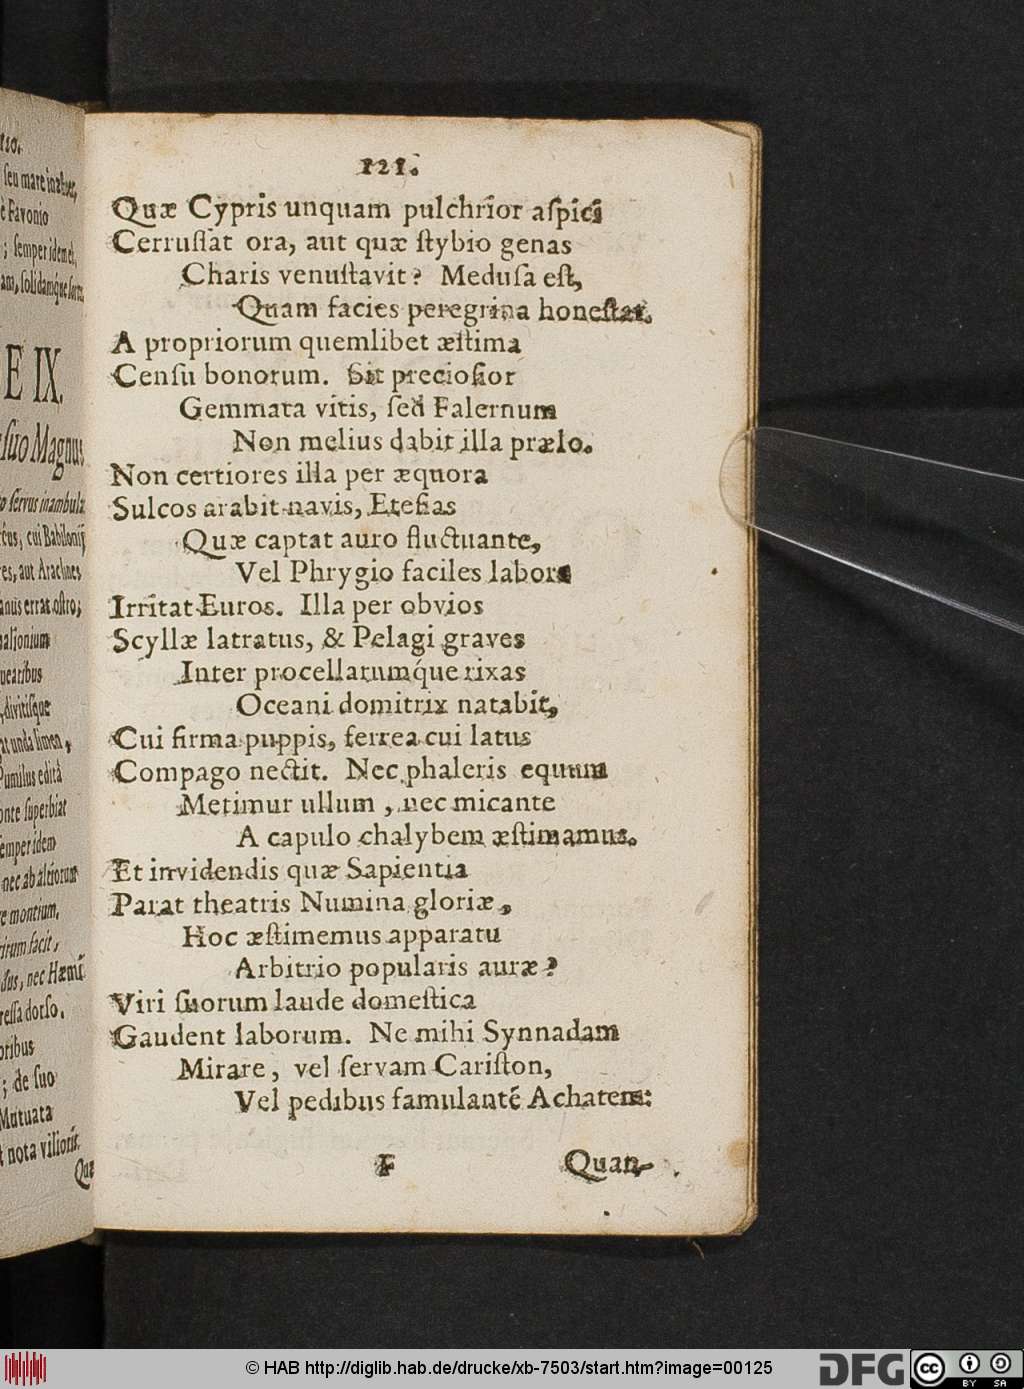 121.
Quæ Cypris unquam pulchrior aſpici
Cerruſſat ora, aut quæ ſtybio genas
Charis venuſtavit? Meduſa eſt,
Quam facies peregrina honeſtat.
A propriorum quemlibet æſtima
Cenſu bonorum. Sit precioſior
Gemmata vitis, ſed Falernum
Non melius dabit illa prælo.
Non certiores illa per æquora
Sulcos arabit navis, Eteſias
Quæ captat auro fluctuante,
Vel Phrygio faciles labore
Irritat Euros. Illa per obvios
Scyllæ latratus, & Pelagi graves
Inter procellarumq́ue rixas
Oceani domitrix natabit,
Cui firma puppis, ferrea cui latus
Compago nectit. Nec phaleris equum
Metimur ullum, nec micante
A capulo chalybem æſtimamus.
Et invidendis quæ Sapientia
Parat theatris Numina gloriæ,
Hoc æſtimemus apparatu
Arbitrio popularis auræ?
Viri ſuorum laude domeſtica
Gaudent laborum. Ne mihi Synnadam
Mirare, vel ſervam Cariſton,
Vel pedibus famulanté Achatem:
F Quan-
110.
ſeu mare
Favonio
; ſemper idem
E IX.
ſuo Magnus
ſervus
cui Babilonij
aut Arachnes
errat oſtro;
divitiſque
unda limen,
Pumilus edita
ſuperbiat
ſemper idem
montium,
facit,
nec Hæmi
dorſo.
; de ſuo
Mutuata
nota
Quæ
© HAB http://diglib.hab.de/drucke/xb-7503/start.htm?image=00125
DFG
cc
BY SA